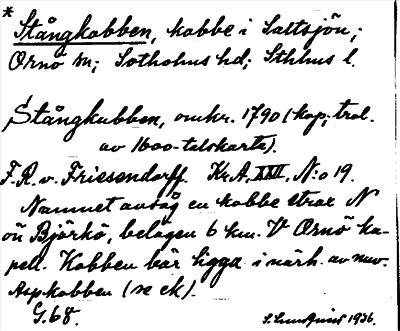 *
Stångkobben, kobbe i Saltsjön;
Ornö sn; Sotholms hd; Sthlms l.
Stångkubben, omkr. 1790 (kop; trol.
av 1600-talskarta).
F.R. v. Friesendorff. Kr.A, XXII, N:o 19.
Namnet avsåg en kobbe strax N
om Björkö, belägen 6 km. V Ornö ka-
pell. Kobben bär ligga i närh. av nuv.
Aspkobben (se ek).
G.68.
S. Lundquist 1936.